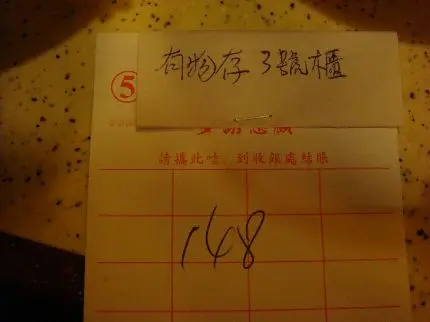 有物存3號櫃
5
請攜此咭、到收銀處結賬
148